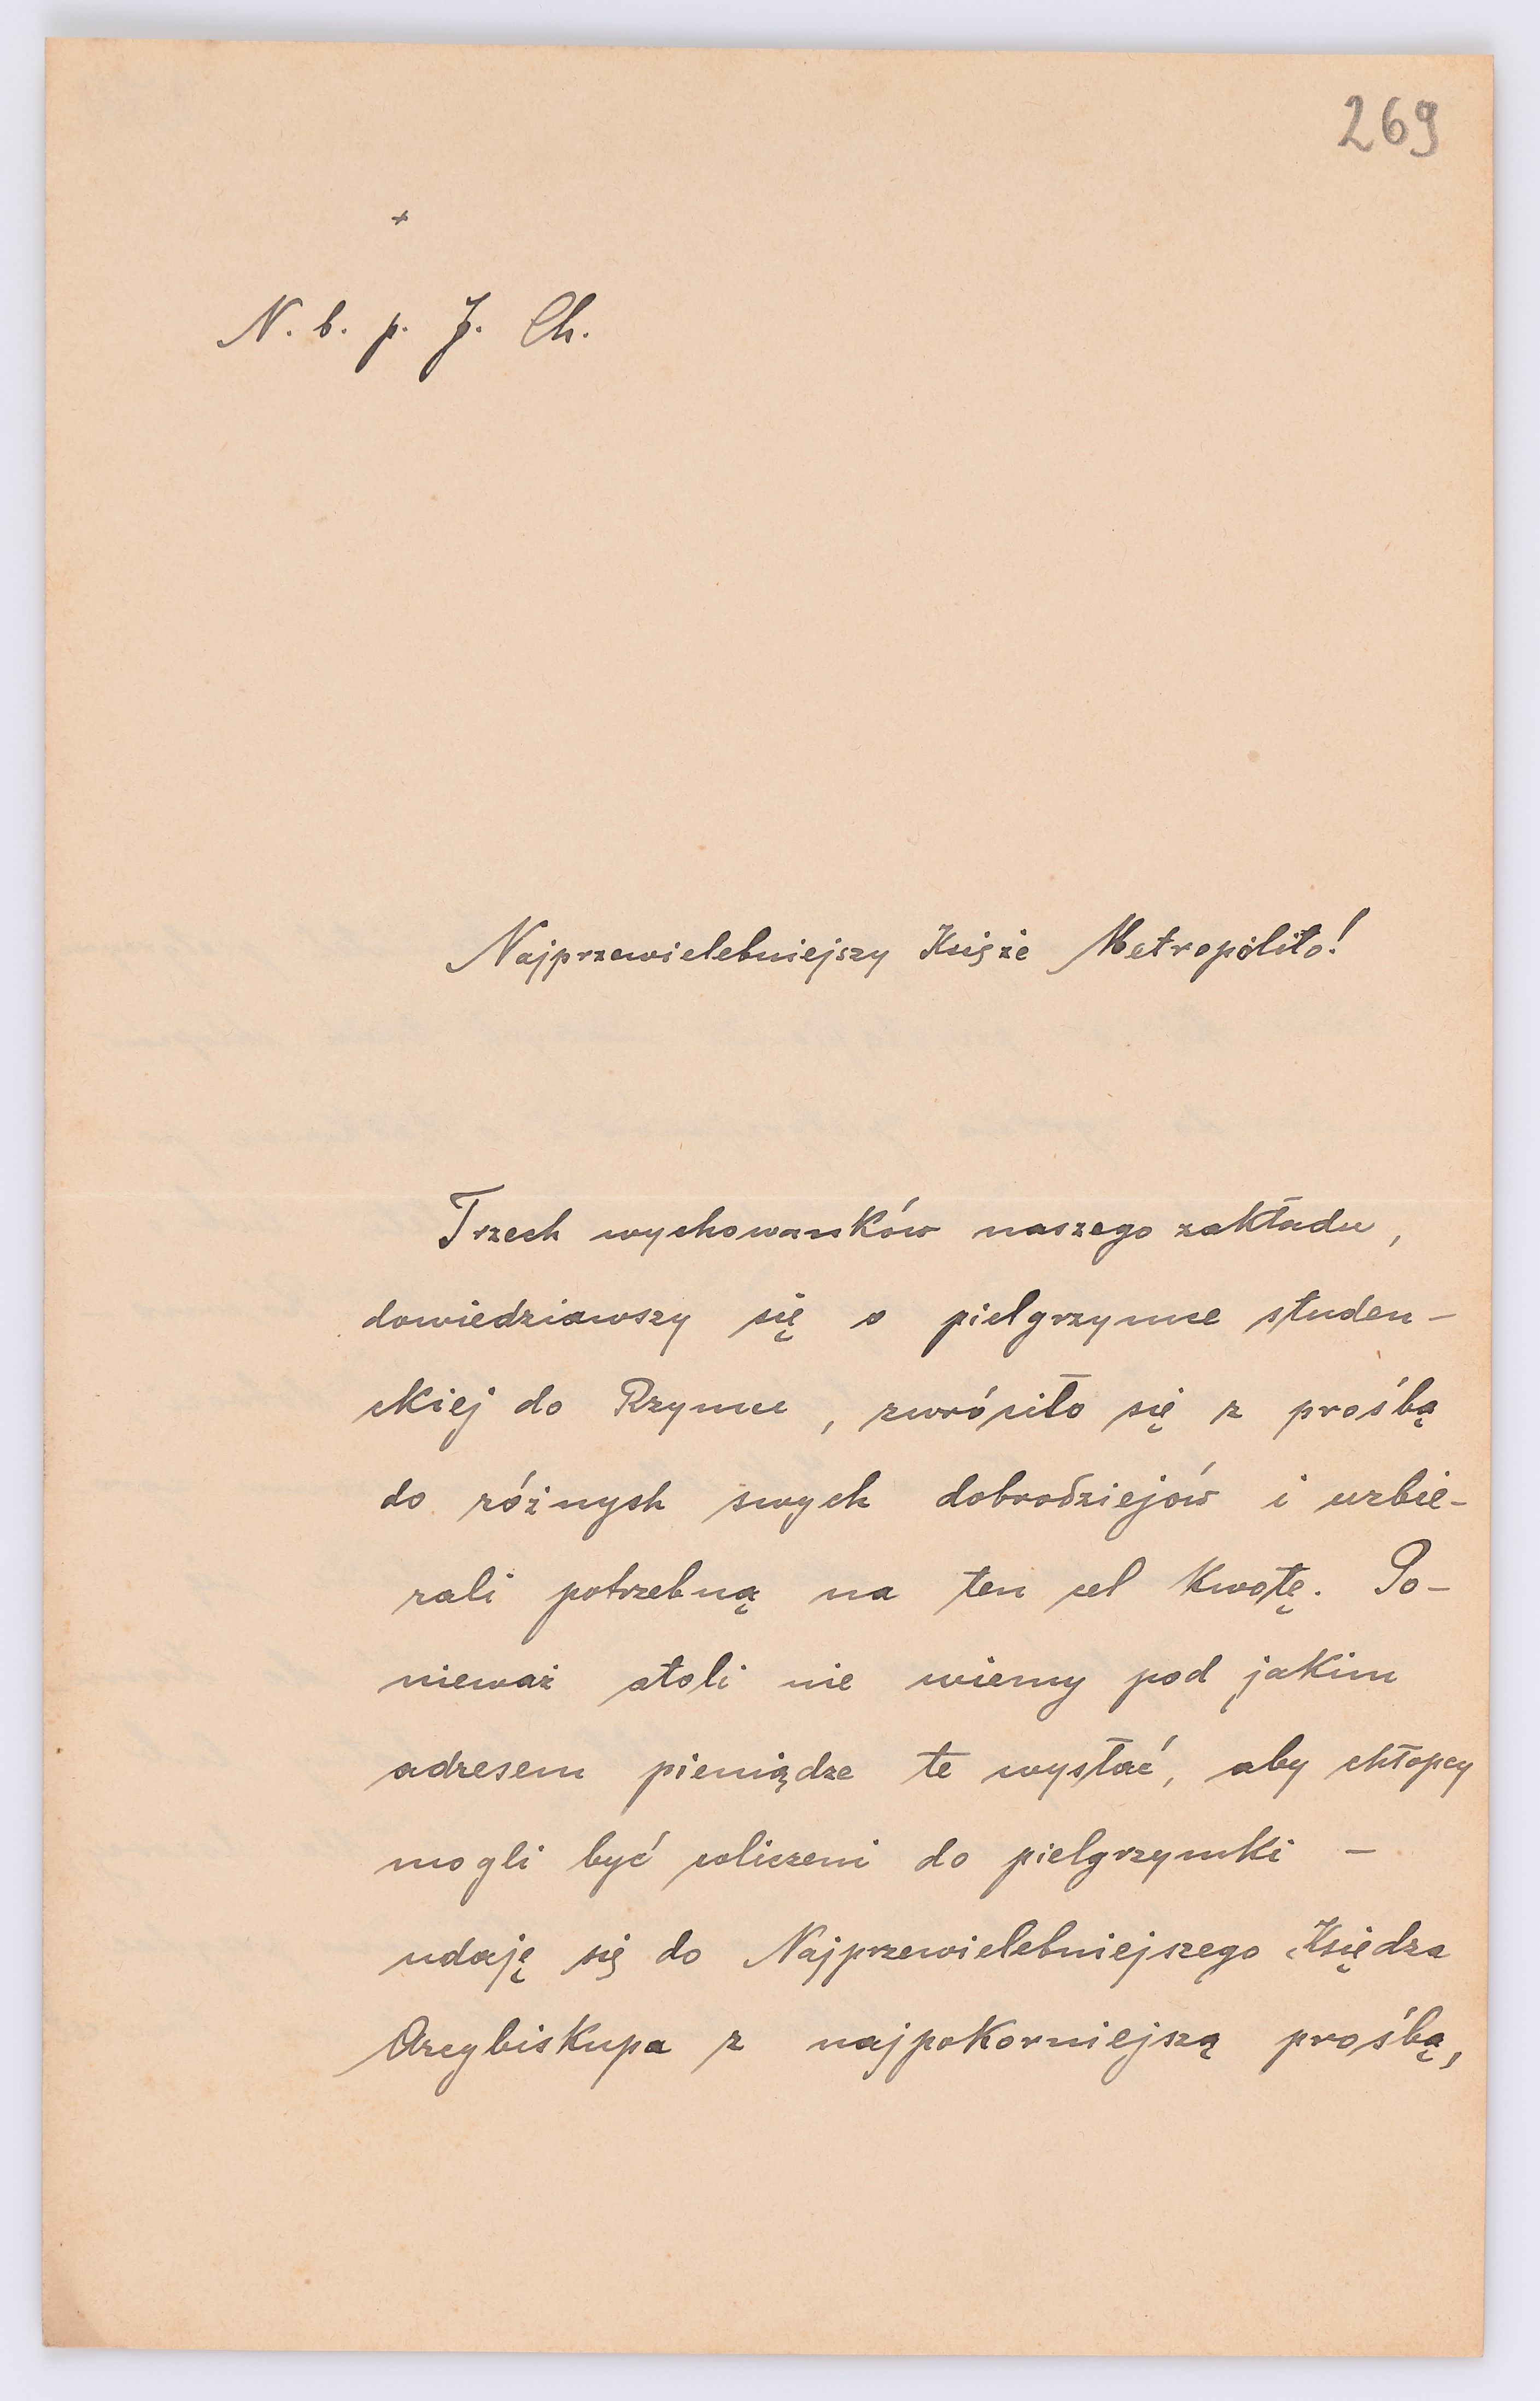 269
+
N. b. p. J. Ch.
Najprzewielebniejszy Księże Metropolito!
Trzech wychowanków naszego zakładu,
dowiedziawszy się o pielgrzymce studen-
ckiej do Rzymu, zwróciło się z prośbą
do różnych swych dobrodziejów i uzbie-
rali potrzebną na ten cel kwotę. Po-
nieważ atoli nie wiemy pod jakim
adresem pieniądze te wysłać, aby chłopcy
mogli być wliczeni do pielgrzymki -
udaję się do Najprzewielebniejszego Księdza
Arcybiskupa z najpokorniejszą prośbą,